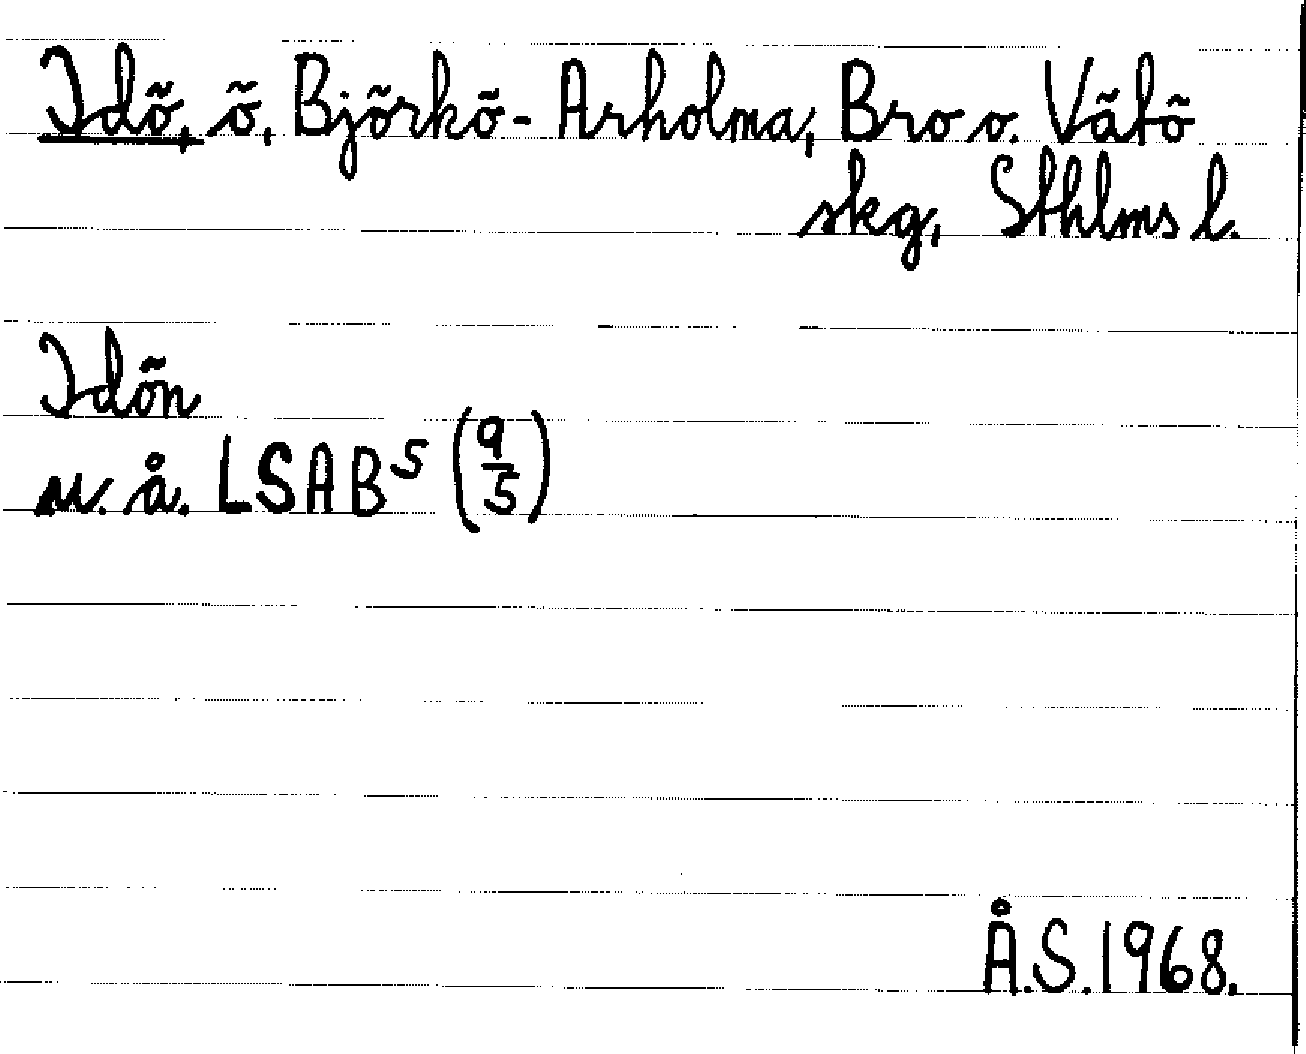 Idö, ö, Björkö-Arholma, Bro o. Vätö
skg, Sthlms l.
Idön
u. å. LSAB⁵ (9/5)
Å.S. 1968.